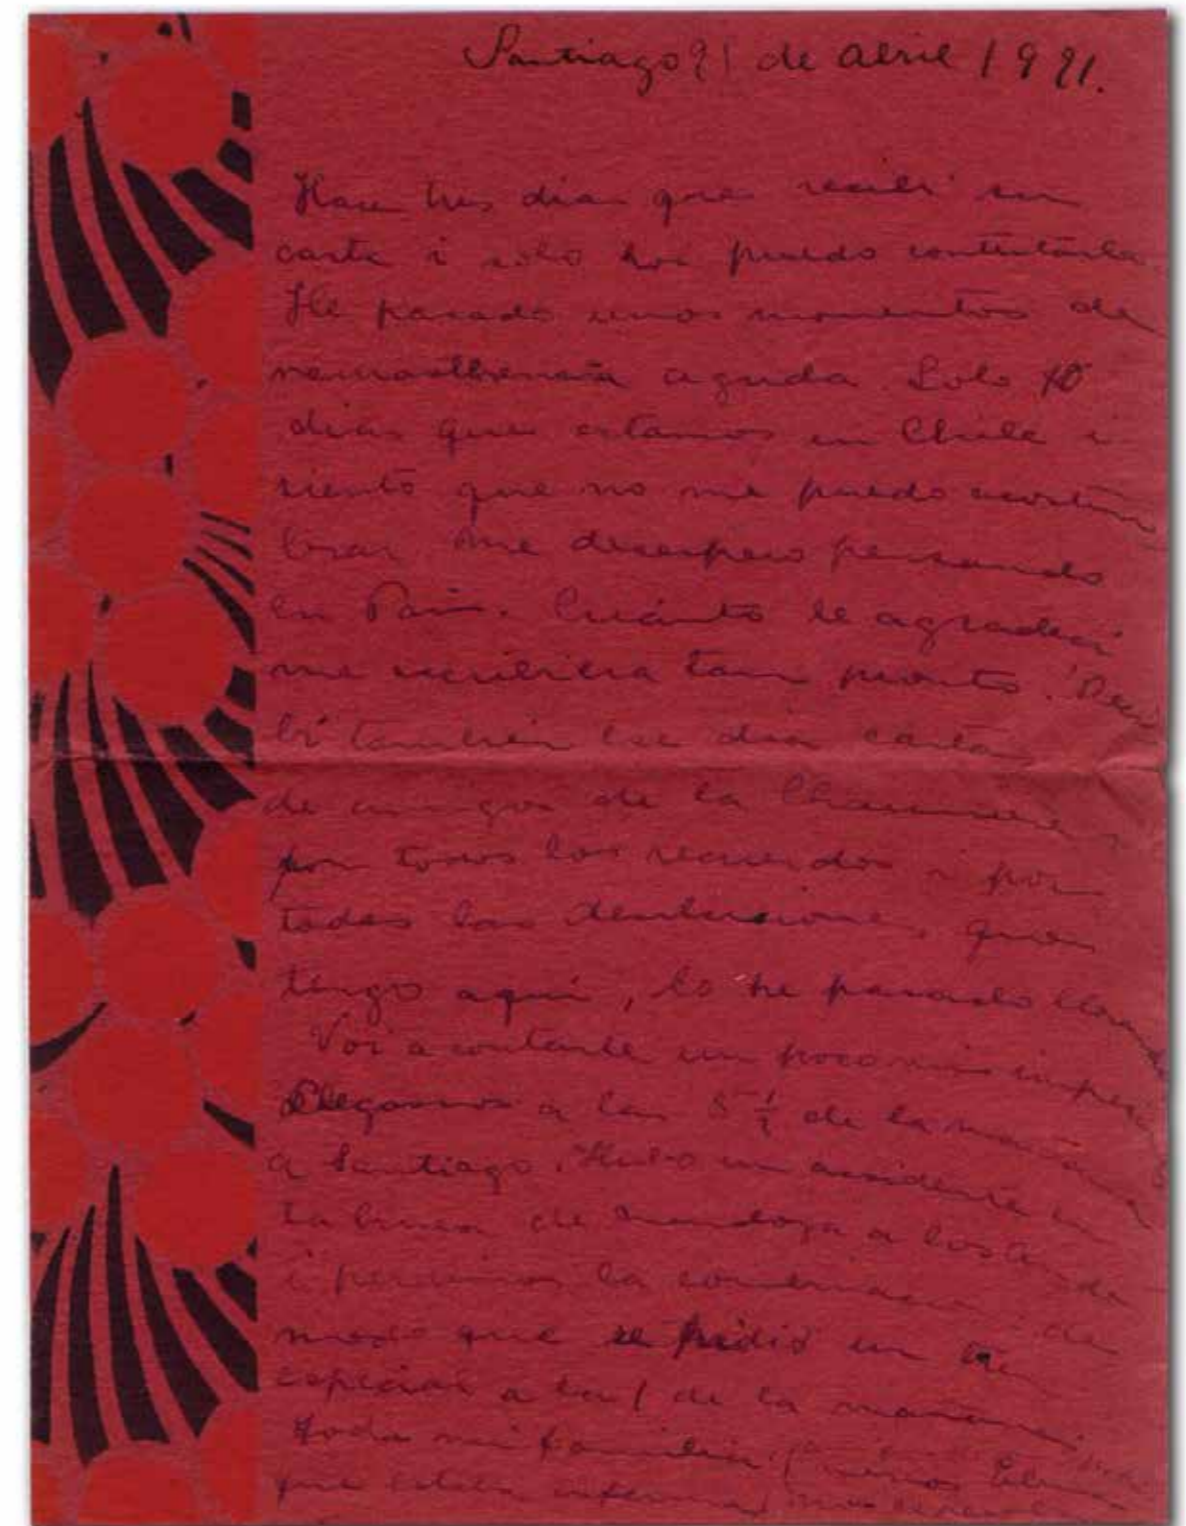 Santiago 21 de abril 1921.
Hace tres dias que recibi su
carta i solo hoi puedo contestarla.
He pasado unos momentos de
neurasthenia aguda. Solo 10
dias que estamos en Chile i
siento que no me puedo acostum
brar. Me desespero pensando
en Paris. Cuánto le agradeci
me escribiera tan pronto. Reci
bi tambien ese dia cartas
de amigos de la Chaumiere
por todos los recuerdos i por
todas las desilusiones, que
tengo aqui, lo he pasado llorando
Voi a contarle un poco mis
Llegamos a las 5 1/2 de la mañana
a Santiago. Hubo un accidente en
la linea de Mendoza a los Andes
i perdimos la combinacion, de
modo que se pidió un tren
especial a la 1 de la mañana
Toda mi familia (menos
que estaba enferma) nos